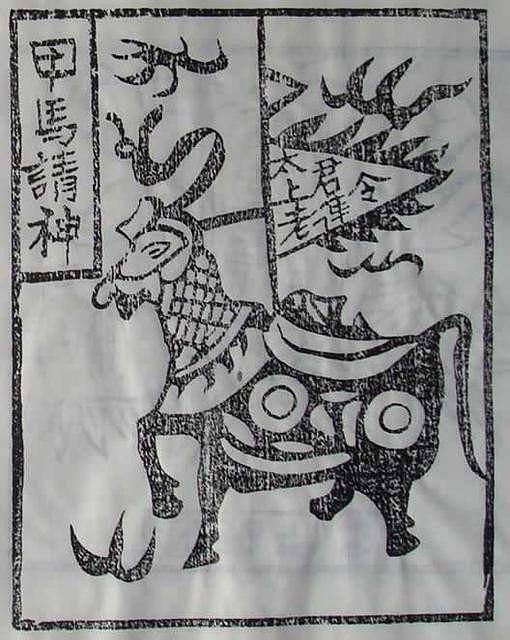 甲馬請神
太上老
君隼
令